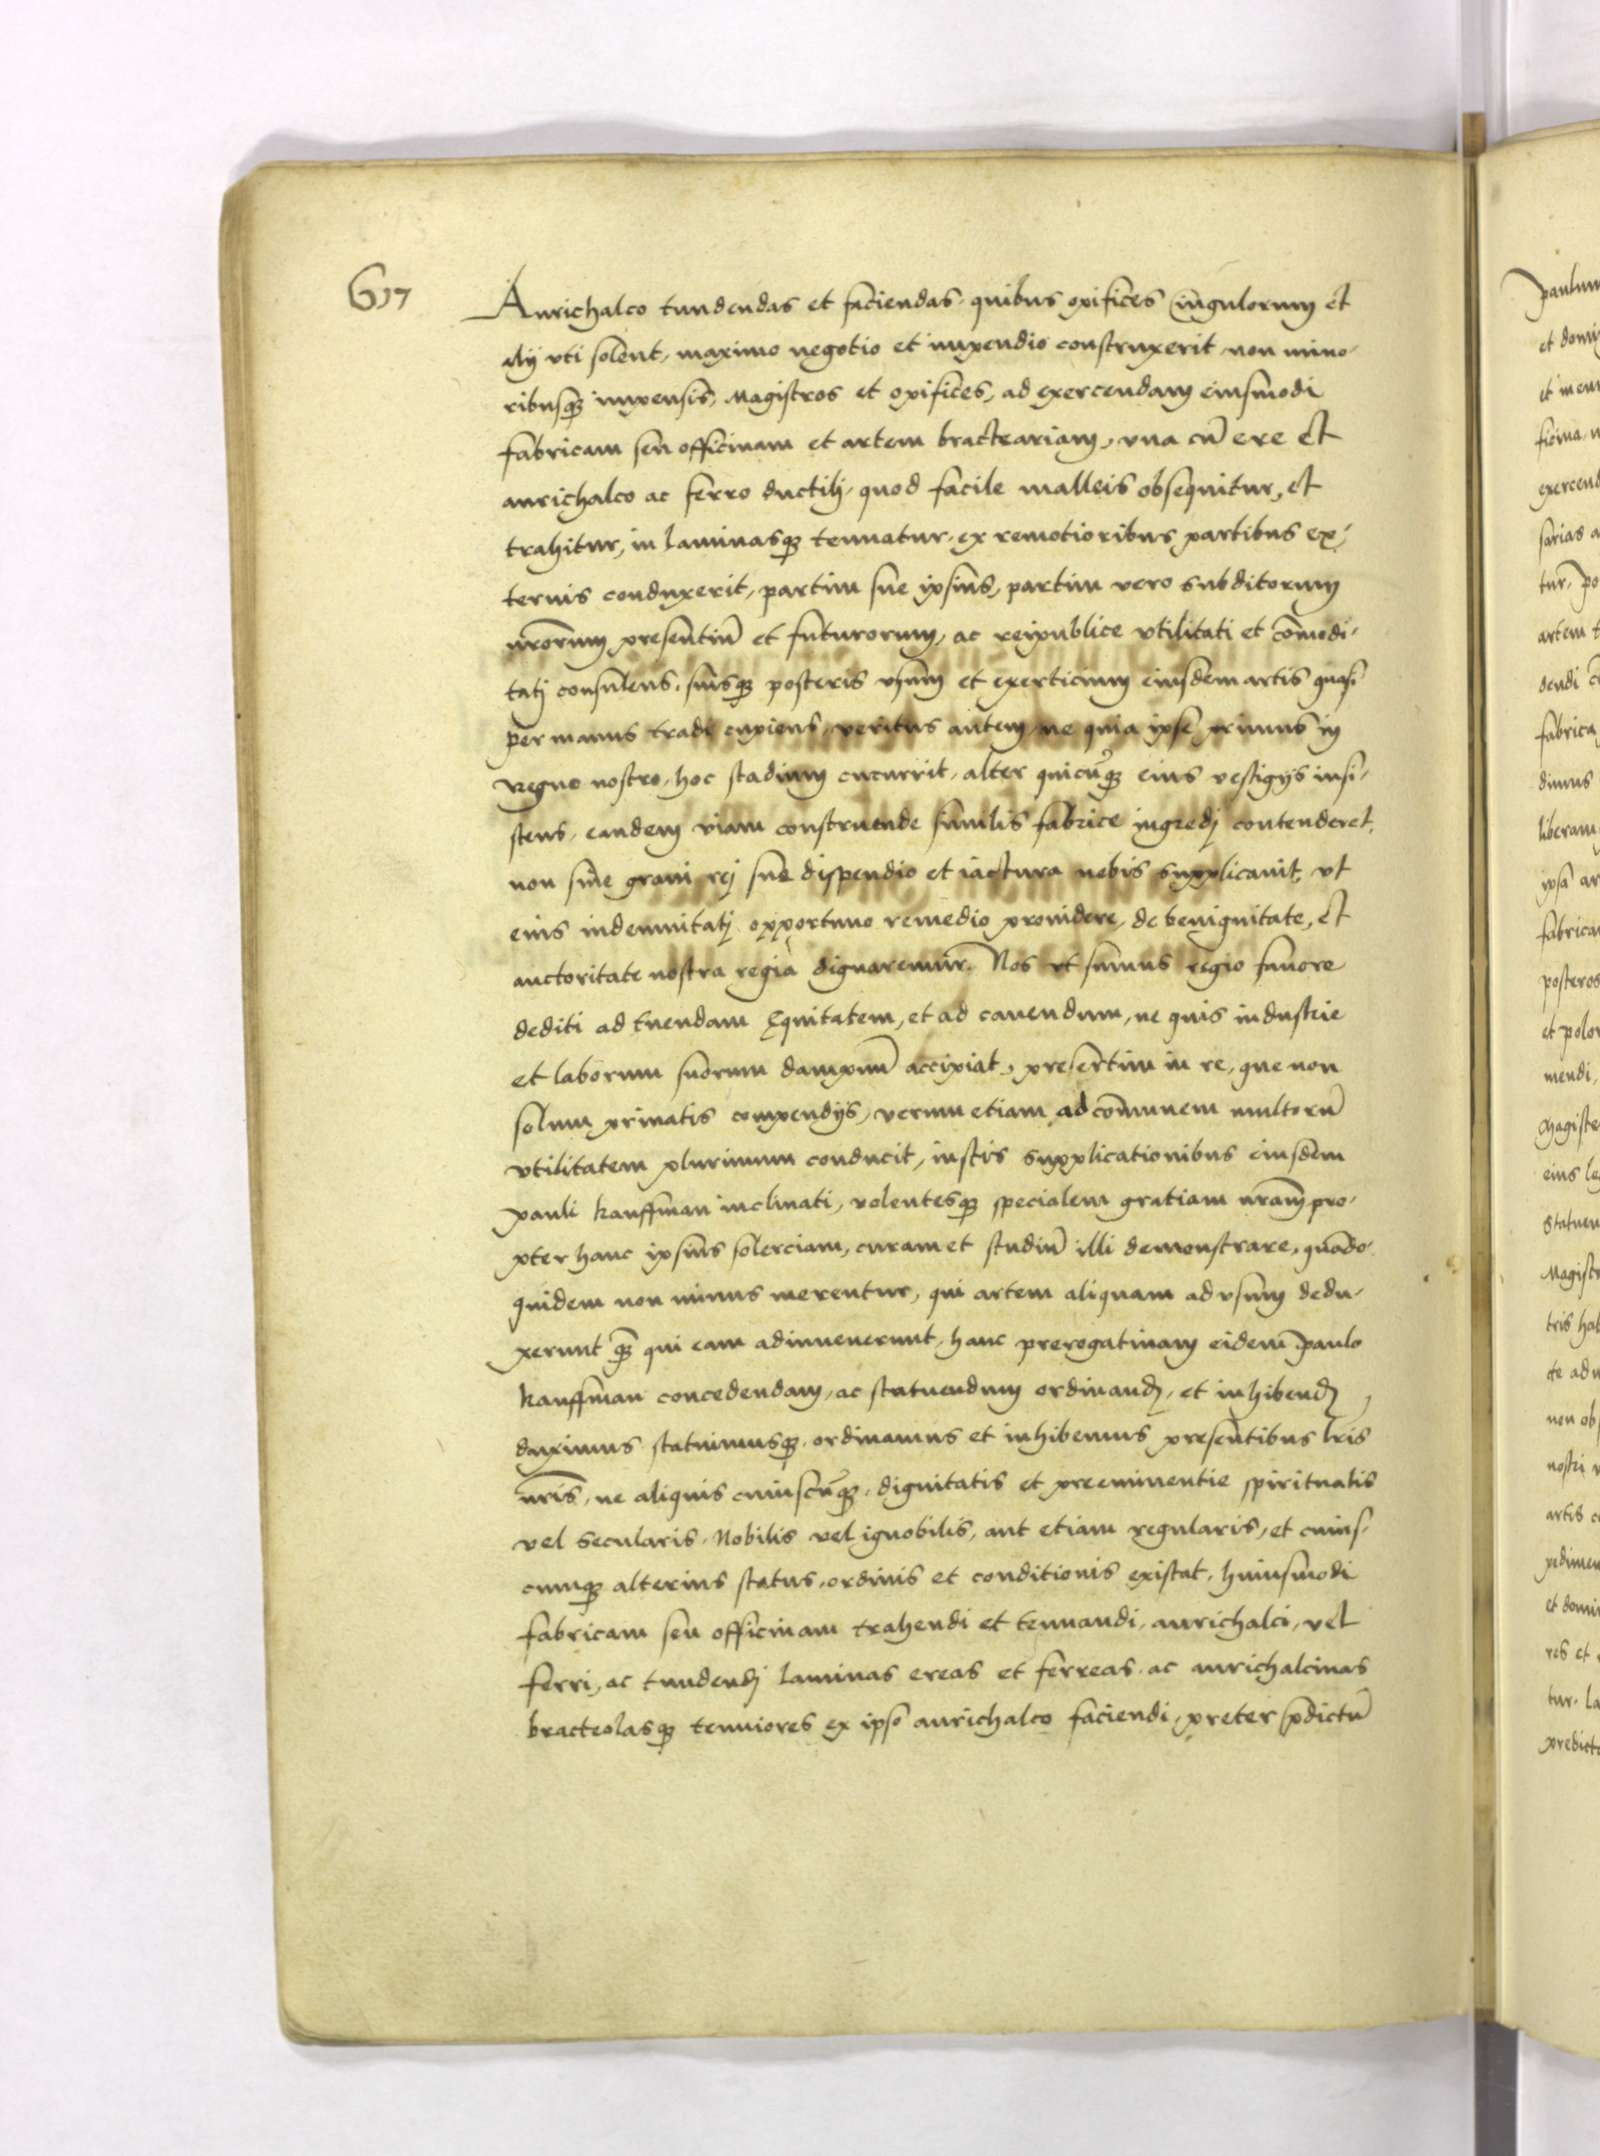 617
Aurichalco tundendas et faciendas, quibus opifices cingulorum et
alij vti solent, maximo negotio et impendio construxerit, non mino-
ribusq impensis, Magistros et opifices, ad exercendam eiusmodi
fabricam seu officinam et artem bracteariam, vna cu ere et
aurichalco ac ferro ductilj, quod facile malleis obsequitur, et
trahitur, in laminasq tenuatur, ex remotioribus partibus ex-
ternis conduxerit, partim sue ipsius, partim vero subditorum
nrorum presentiu et futurorum, ac reipublice vtilitati et comodi-
tatj consulens, suisq posteris vsum et exerticium eiusdem artis quasi
per manus tradi cupiens, veritus autem, ne quia ipse primus in
regno nostro, hoc stadium cucurrit, alter quicuq eius vestigijs insi-
stens, eandem viam construende similis fabrice ingredj contenderet,
non sine gravi rej sue dispendio et iactura nobis supplicavit, vt
eius indemnitatj opportuno remedio providere, de benignitate, et
auctoritate nostra regia dignaremur. Nos vt sumus regio favore
dediti ad tuendam Equitatem, et ad cavendum, ne quis industrie
et laborum suorum dampnu accipiat, presertim in re, que non
solum privatis compendijs, verum etiam ad comunem multoru
vtilitatem plurimum conducit, iustis supplicationibus eiusdem
pauli kauffman inclinati, volentesq specialem gratiam nram pro-
pter hanc ipsius solerciam, curam et studiu illi demonstrare, quado-
quidem non minus merentur, qui artem aliquam ad vsum dedu-
xerunt q qui eam adinvenerunt, hanc prerogativam eidem paulo
kauffman concedendam, ac statuendum ordinand, et inhibend
duximus statuimusq, ordinamus et inhibemus presentibus lris
nris, ne aliquis cuiuscuq, dignitatis et preeminentie spiritualis
vel secularis, Nobilis vel ignobilis, aut etiam regularis, et cuius-
cumq alterius status, ordinis et conditionis existat, huiusmodi
fabricam seu officinam trahendi et tenuandi, aurichalci, vel
ferri, ac tundendj laminas ereas et ferreas, ac aurichalcinas
bracteolasq tenuiores ex ipso aurichalco faciendi, preter pdictu